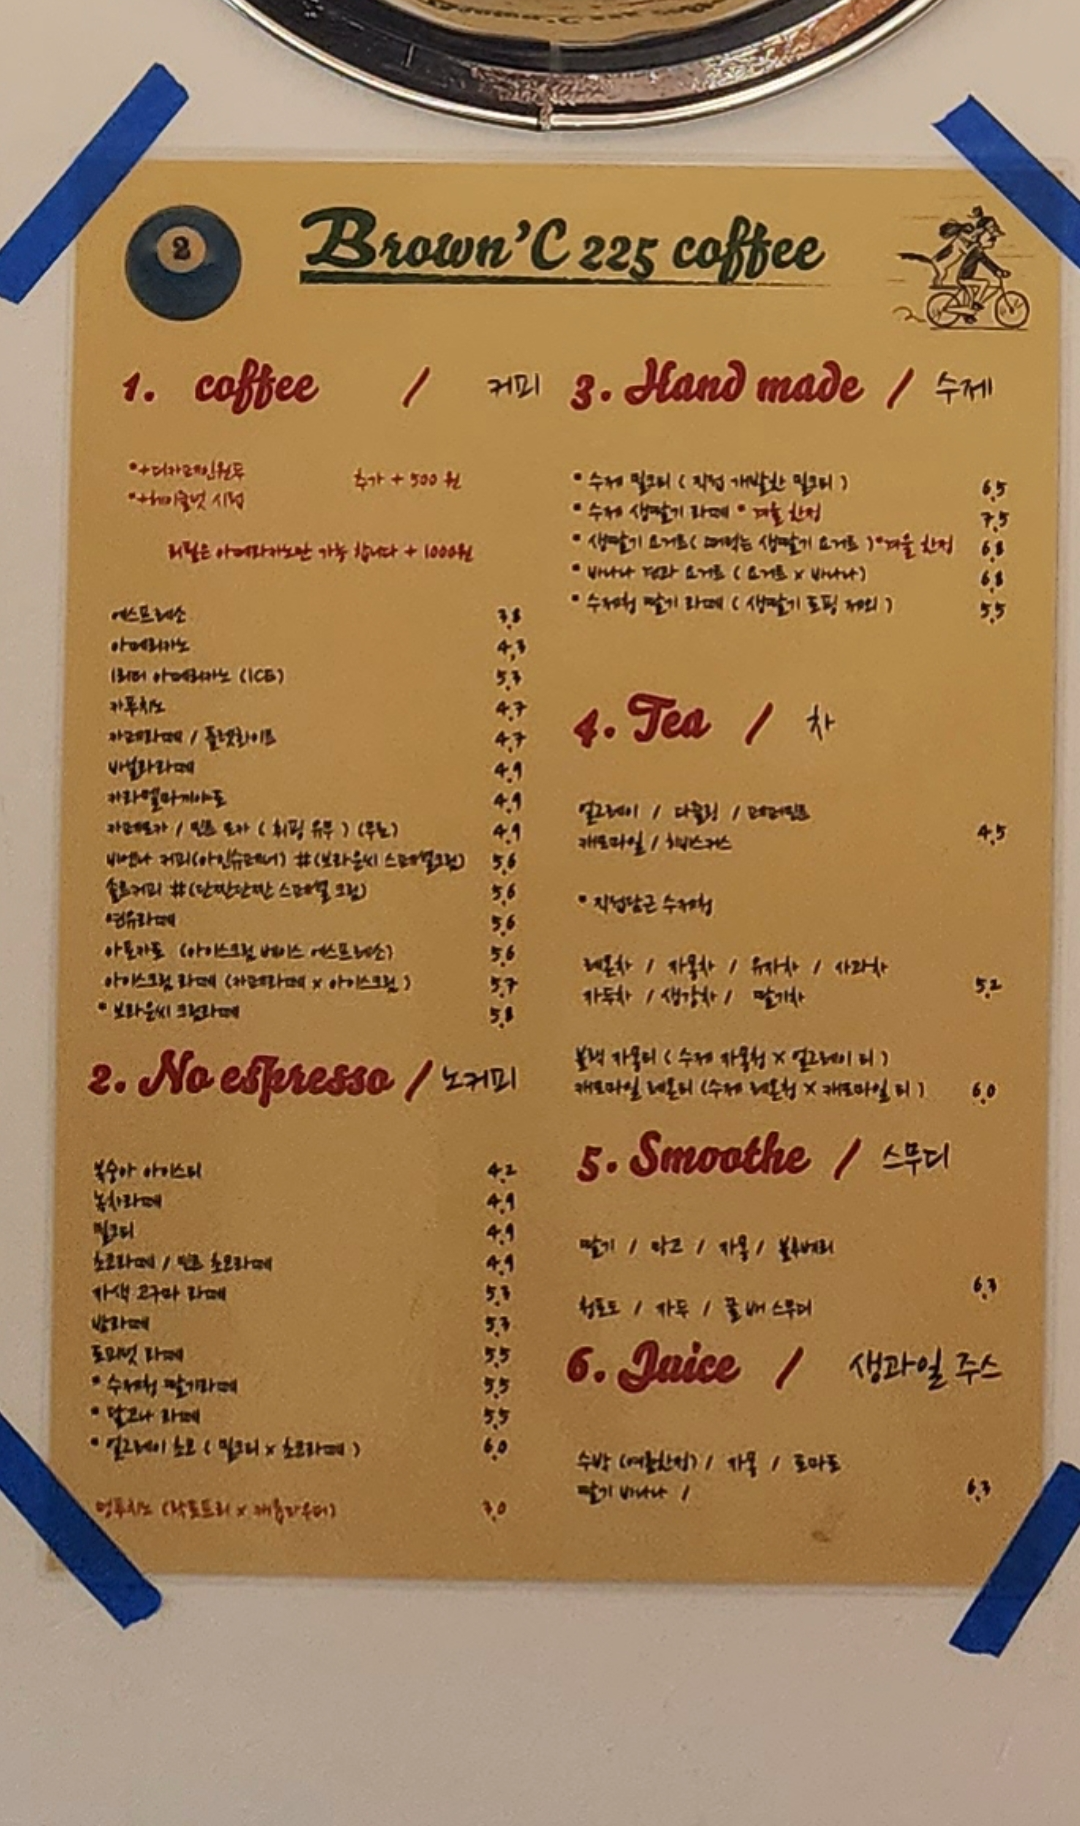 2
Brown'C 225 coffee
1. coffee / 커피
*+디카페인원두
*+헤이즐넛 시럽
추가 + 500 원
리필은 아메리카노만 가능 합니다 + 1000원
에스프레소 3.8
아메리카노 4.3
1리터 아메리카노 (ICE) 5.3
카푸치노 4.7
카페라떼 / 플랫화이트 4.7
바닐라라떼 4.9
카라멜마끼아또 4.9
카페모카 / 민트 모카 ( 휘핑 유무 ) (무료) 4.9
비엔나 커피(아인슈페너) #(브라운씨 스페셜크림) 5.6
솔트커피 #(단짠단짠 스페셜 크림) 5.6
연유라떼 5.6
아포카토 (아이스크림 베이스 에스프레소) 5.6
아이스크림 라떼 (카페라떼 x 아이스크림 ) 5.7
* 브라운씨 크림라떼 5.8
2. No espresso / 노커피
복숭아 아이스티 4.2
녹차라떼 4.9
밀크티 4.9
초코라떼 / 민트 초코라떼 4.9
자색 고구마 라떼 5.3
밤라떼 5.3
토피넛 라떼 5.5
* 수제청 딸기라떼 5.5
* 달고나 라떼 5.5
* 얼그레이 초코 ( 밀크티 x 초코라떼 ) 6.0
멍푸치노 (락토프리 x 캐롭파우더) 3.0
3. Hand made / 수제
* 수제 밀크티 ( 직접 개발한 밀크티 ) 6.5
* 수제 생딸기 라떼 * 겨울 한정 7.5
* 생딸기 요거트( 떠먹는 생딸기 요거트 )*겨울 한정 6.8
* 바나나 요거트 ( 요거트 x 바나나) 6.8
* 수제청 딸기 라떼 ( 생딸기 토핑 제외 ) 5.5
4. Tea / 차
얼그레이 / 다즐링 / 페퍼민트
캐모마일 / 히비스커스 4.5
* 직접담근 수제청
레몬차 / 자몽차 / 유자차 / 사과차
자두차 / 생강차 / 딸기차 5.2
블랙 자몽티 ( 수제 자몽청 X 얼그레이 티 )
캐모마일 레몬티 (수제 레몬청 X 캐모마일 티 ) 6.0
5. Smoothe / 스무디
딸기 / 망고 / 자몽 / 블루베리
6.3
청포도 / 자두 / 꿀 배 스무디
6. Juice / 생과일 주스
수박 (여름한정) / 자몽 / 토마토
딸기 바나나 / 6.3